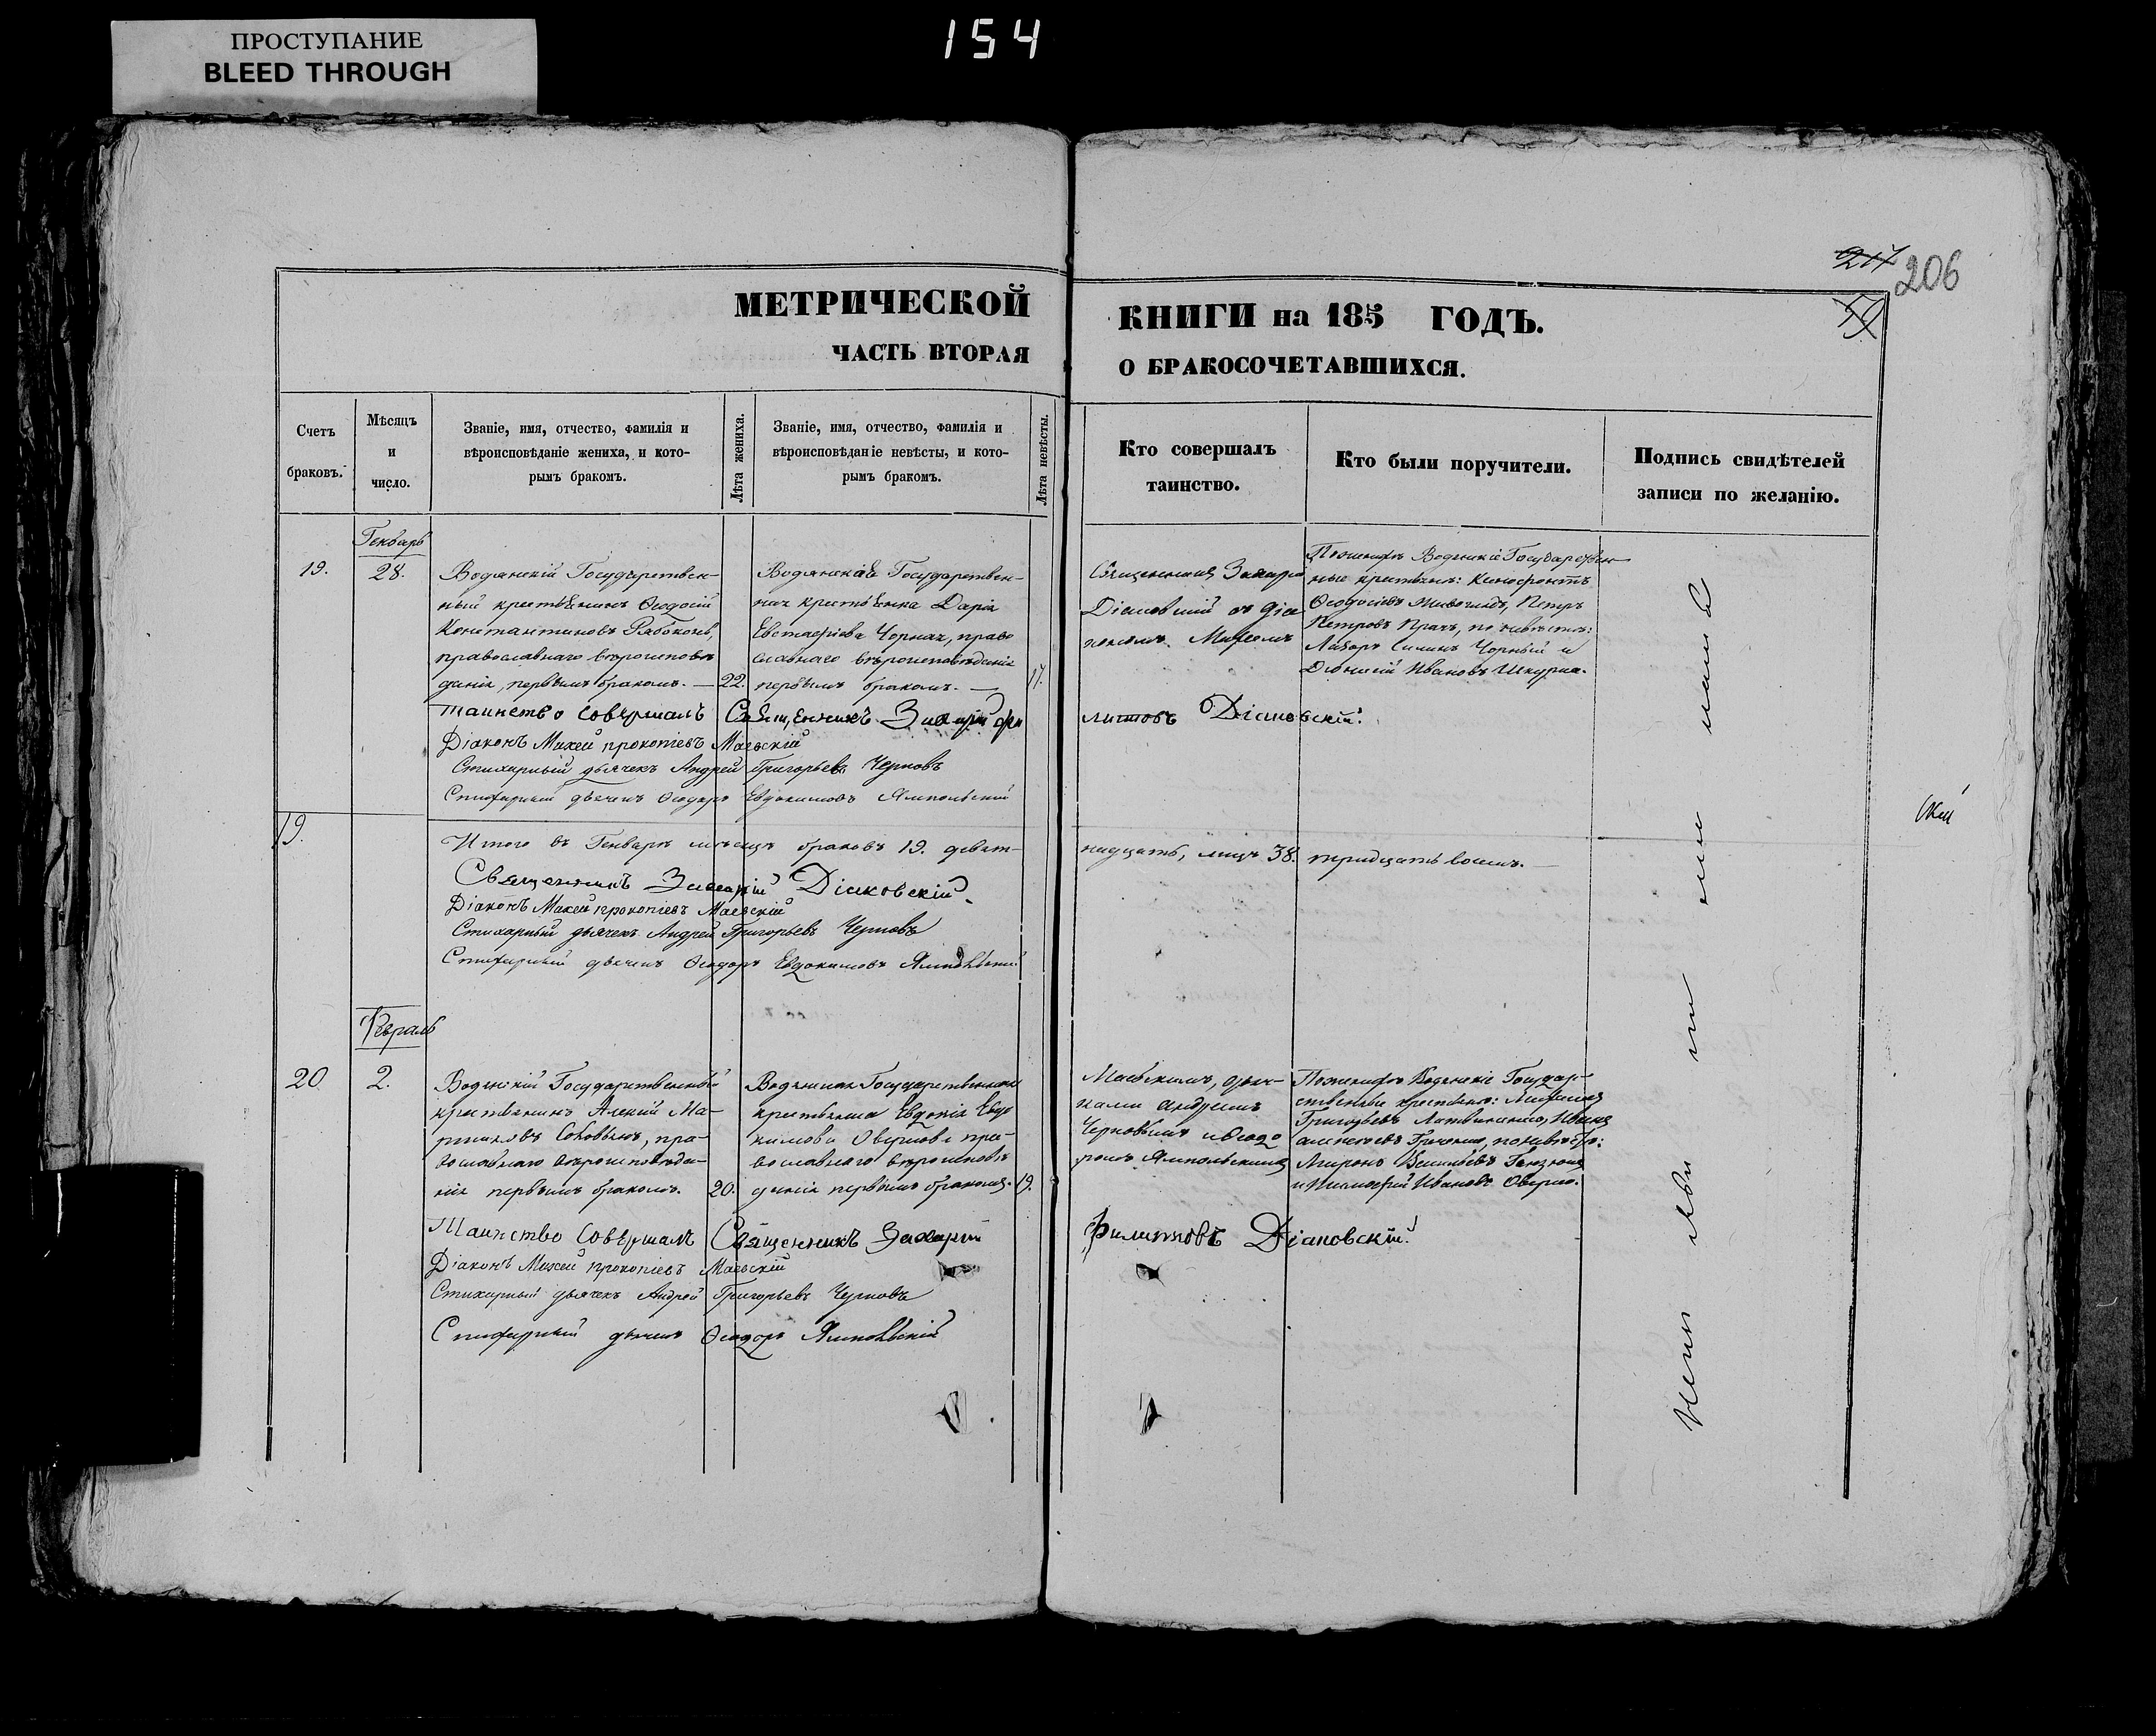 ПРОСТУПАНИЕ
BLEED THROUGH
154
217 206
МЕТРИЧЕСКОЙ КНИГИ на 185 ГОДЪ.
ЧАСТЬ ВТОРАЯ О БРАКОСОЧЕТАВШИХСЯ.
Счетъ браковъ.
Мѣсяцъ и число.
Званіе, имя, отчество, фамилія и
вѣроисповѣданіе жениха, и кото-
рымъ бракомъ.
Лѣта жениха.
Званіе, имя, отчество, фамилія и
вѣроисповѣданіе невѣсты, и кото-
рымъ бракомъ.
Лѣта невѣсты.
Кто совершалъ
таинство.
Кто были поручители.
Подпись свидѣтелей
записи по желанію.
Генварь
19.
28.
Водянскій Государствен-
ный крестьянинъ Ѳеодосій
Константиновъ Рябоконь,
православнаго вѣроисповѣ
данія, первымъ бракомъ. —
22.
Водянская Государствен-
ная крестьянка Дарія
Евстафіева Чорная, право
славнаго вѣроисповѣданія
первымъ бракомъ. —
17.
Священникъ
Діаковскій съ діа
кономъ
Водянскіе Государствен
ные крестьяне:
Ѳеодосіевъ Петръ
Петровъ по невѣстѣ:
Силинъ Чорный и
Діонисій Ивановъ Шкурка.
Таинство совершалъ Священникъ Захарій Фи литовъ Діаковскій.
Діаконъ Мокей прокопіевъ Маевскій
Стихарный дьячекъ Андрей Григорьевъ Черновъ
Стихарный дьячекъ Ѳеодоръ Евдокимовъ Ямпольскій
19.
Итого въ Генварѣ мѣсяцѣ браковъ 19. девят- надцать, лицъ 38. тридцать восемь. —
Священникъ Захарій Діаковскій.
Діаконъ Мокей прокопіевъ Маевскій
Стихарный дьячекъ Андрей Григорьевъ Черновъ
Стихарный дьячекъ Ѳеодоръ Евдокимовъ Ямпольскій
Февраль
20.
2.
Водянскій Государственный
крестьянинъ Алексій Ма-
пра-
вославнаго вѣроисповѣда-
нія первымъ бракомъ.
20.
Водянская Государственная
крестьянка Евдокія Евдо
кимова пра-
вославнаго вѣроисповѣ
данія первымъ бракомъ.
19.
Маевскимъ, дьяч-
ками Андреемъ
Черновымъ и Ѳеодо
ромъ Ямпольскимъ
Водянскіе Государ-
ственные крестьяне:
Григорьевъ Литвиненко, Иванъ
Алексіевъ по невѣстѣ:
Миронъ Васильевъ
Ивановъ
Таинство совершалъ Священникъ Захарій Филитовъ Діаковскій.
Діаконъ Мокей прокопіевъ Маевскій
Стихарный дьячекъ Андрей Григорьевъ Черновъ
Стихарный дьячекъ Ѳеодоръ Ямпольскій